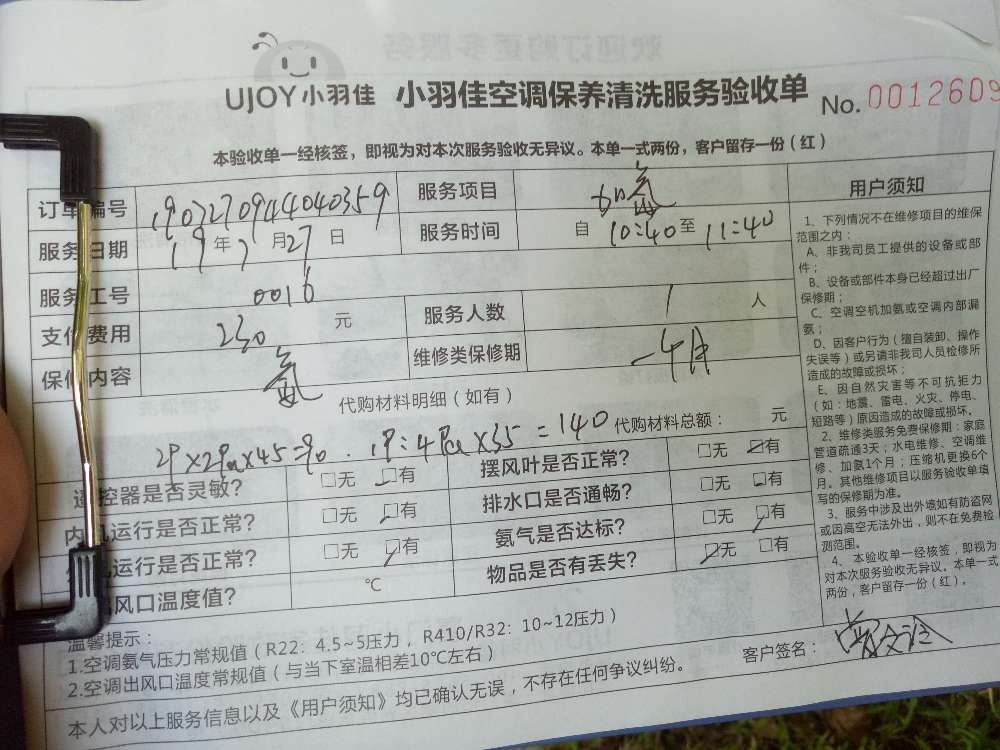 欢迎订购更多服务
UJOY小羽佳 小羽佳空调保养清洗服务验收单 No. 0012609
本验收单一经核签，即视为对本次服务验收无异议。本单一式两份，客户留存一份（红）
订单编号 190727094404035 9 服务项目 加氨 用户须知
服务日期 19年7月27日 服务时间 自10:40至11:40
服务工号 0016
支付费用 230 元 服务人数 1 人
保修内容 氨 维修类保修期 一个月
代购材料明细（如有）
2P×2Pa×45=90. 1P:4Pa×35=140 代购材料总额： 元
遥控器是否灵敏? □无 □有 摆风叶是否正常? □无 □有
内机运行是否正常? □无 □有 排水口是否通畅? □无 □有
外机运行是否正常? □无 □有 氨气是否达标? □无 □有
出风口温度值? ℃ 物品是否有丢失? □无 □有
1、下列情况不在维修项目的维保
范围之内：
A、非我司员工提供的设备或部
件；
B、设备或部件本身已经超过出厂
保修期；
C、空调空机加氨或空调内部漏
氨；
D、因客户行为（擅自装卸、操作
失误等）或另请非我司人员检修所
造成的故障或损坏；
E、因自然灾害等不可抗拒力
（如：地震、雷电、火灾、停电、
短路等）原因造成的故障或损坏。
2、维修类服务免费保修期：家庭
管道疏通3天；水电维修、空调维
修、加氨1个月；压缩机更换6个
月。其他维修项目以服务验收单填
写的保修期为准。
3、服务中涉及出外墙如有防盗网
或因高空无法外出，则不在免费检
测范围。
4、本验收单一经核签，即视为
对本次服务验收无异议。本单一式
两份，客户留存一份（红）。
温馨提示：
1.空调氨气压力常规值（R22：4.5~5压力，R410/R32：10~12压力）
2.空调出风口温度常规值（与当下室温相差10℃左右）
客户签名：
本人对以上服务信息以及《用户须知》均已确认无误，不存在任何争议纠纷。